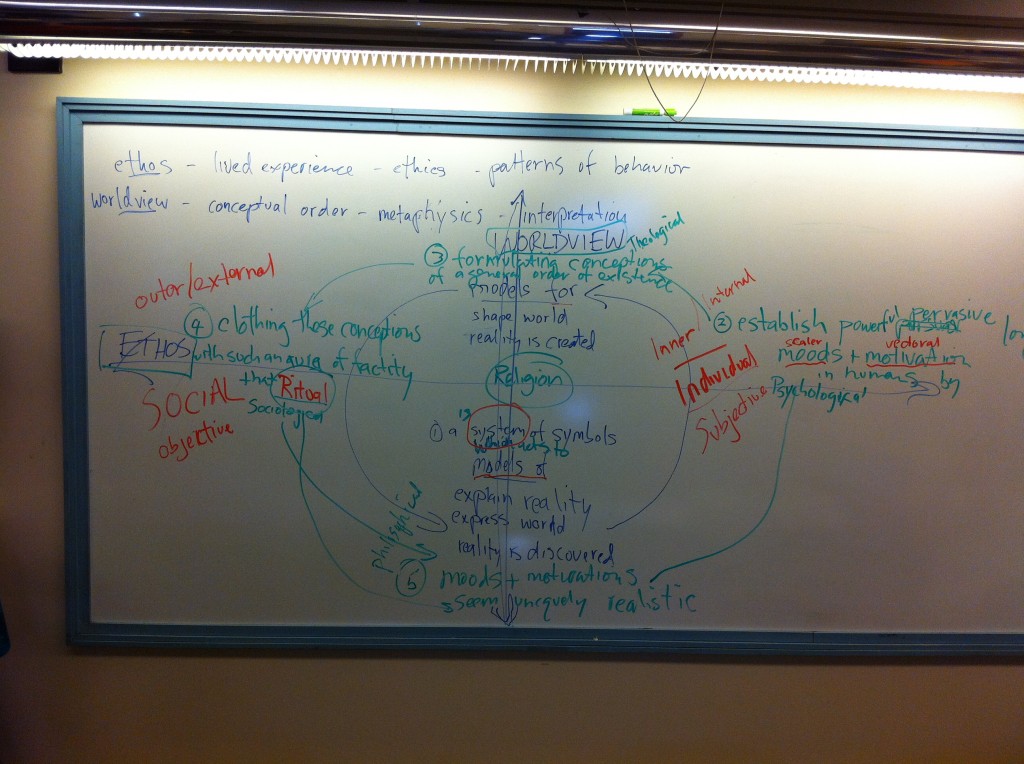 ethos - lived experience - ethics - patterns of behavior
worldview - conceptual order - metaphysics - interpretation
WORLDVIEW
Theological
③ formulating conceptions
of a general order of existence
models for
shape world
reality is created
Religion
outer/external
④ clothing those conceptions
ETHOS
with such an aura of factity
that
Ritual
Sociological
SOCIAL
objective
internal
Inner
Individual
Subjective
② establish powerful pervasive
scaler vectoral
moods + motivation
in humans by
Psychological
is
① a system of symbols
which acts to
models of
explain reality
express world
reality is discovered
⑤ moods + motivations
seem uniquely realistic